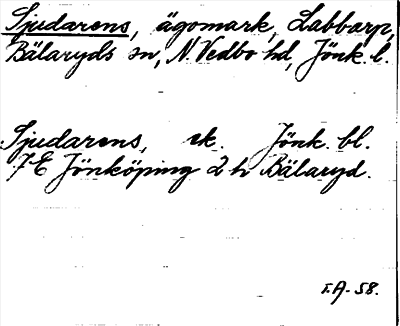 Sjudarens, ägomark, Labbarp,
Bälaryds sn, N. Vedbo hd, Jönk. l.
Sjudarens, ek. Jönk. bl.
7E Jönköping 2h Bälaryd.
F.A-58.